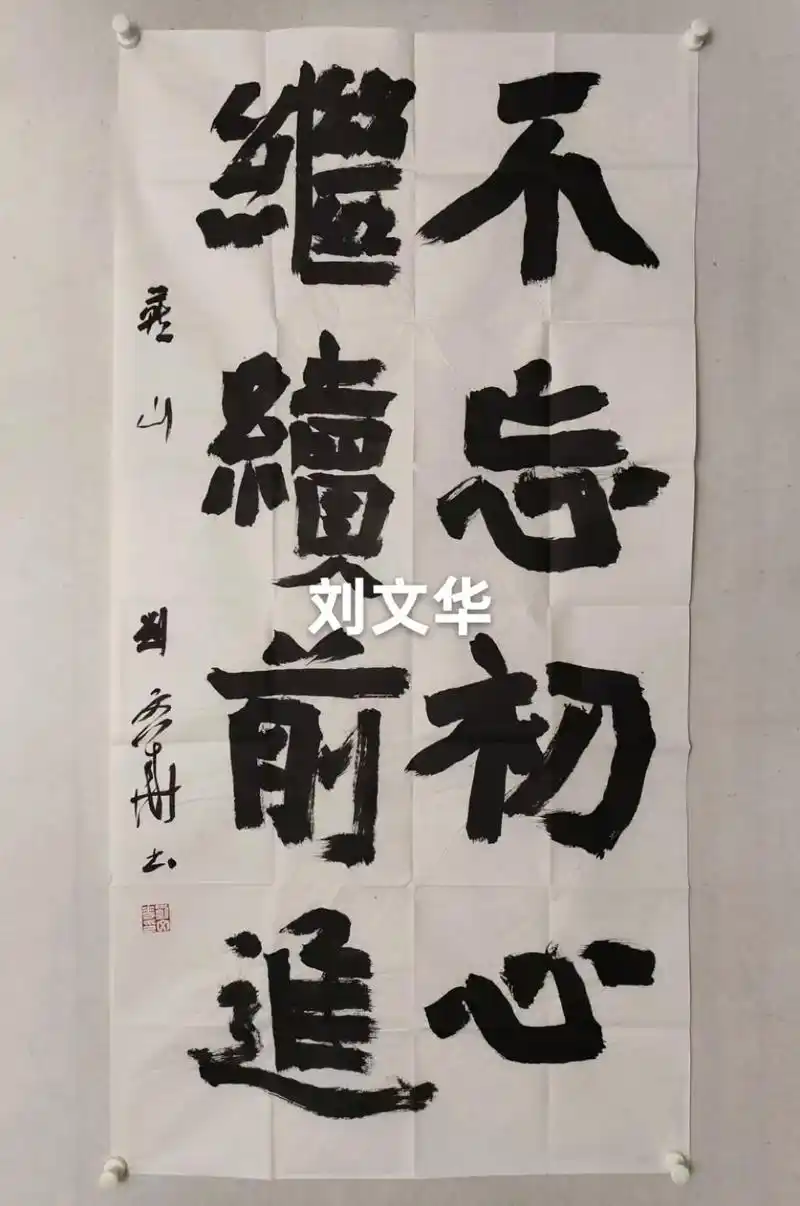 不忘初心
繼續前進
燕山 劉文華书
刘文华